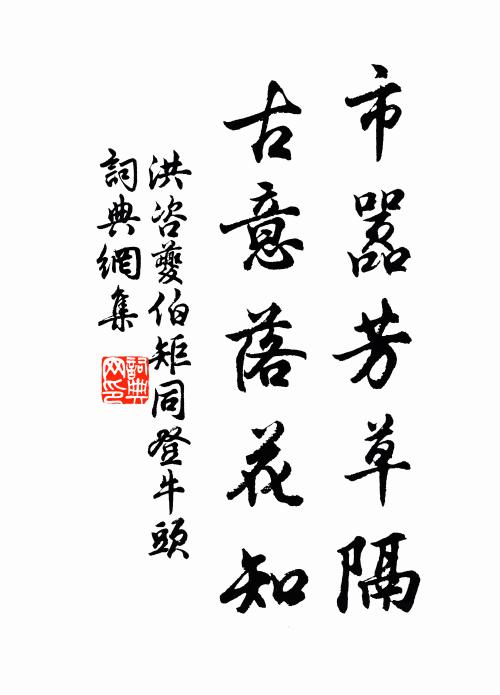 市嚣芳草隔
古意落花知
洪咨夔伯矩同登牛頭
詞典網集
詞典網印